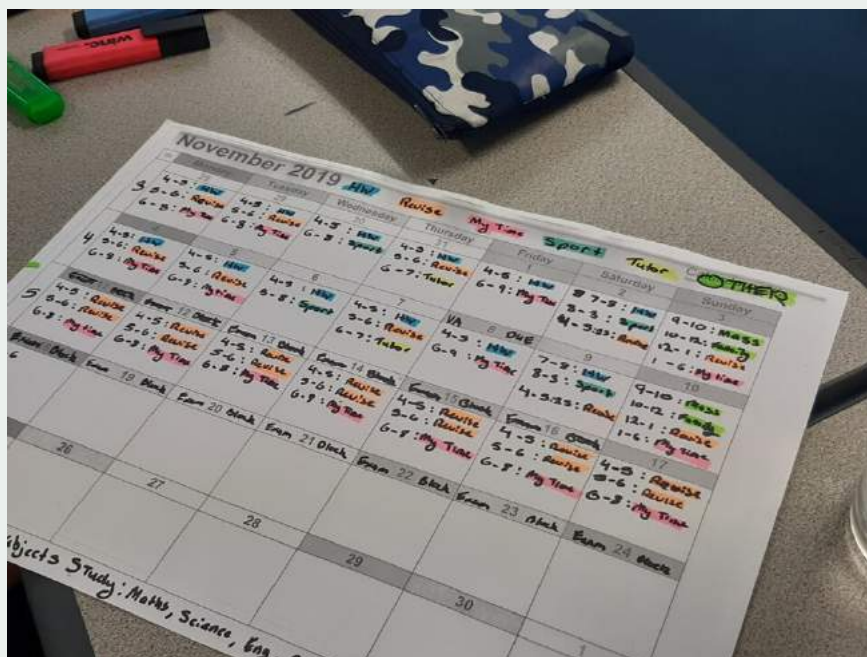 winc.
November 2019 HW Revise My Time Sport Tutor OTHER
Tuesday Wednesday Thursday Friday Saturday Sunday
3
4-5: HW
5-6: Revise
6-8: My Time
4-5: HW
5-6: Revise
6-8: My Time
30
4-5: HW
6-8: Sport
31
4-5: HW
5-6: Revise
6-7: Tutor
4-5: HW
6-9: My Time
2
7-8: HW
8-3: Sport
3
9-10: Mass
10-12: Family
12-1: Revise
1-6: My time
4
4-5: HW
5-6: Revise
6-8: My Time
4-5: HW
5-6: Revise
6-8: My time
6
4-5: HW
5-8: Sport
7
4-5: HW
5-6: Revise
6-7: Tutor
VA 8 DUE
4-5: HW
6-9: My Time
9
7-8: HW
8-3: Sport
10
9-10: Mass
10-12: Family
12-1: Revise
1-6: My Time
5
4-5: Revise
5-6: Revise
6-8: My time
12 Block
4-5: Revise
5-6: Revise
6-8: My Time
Exam 13 Block
4-5: Revise
5-6: Revise
6-8: My Time
Exam 14 Block
4-5: Revise
5-6: Revise
6-8: My Time
Exam 15 Block
4-5: Revise
5-6: Revise
6-8: My Time
Exam 16 Block
4-5: Revise
5-6: Revise
6-8: My Time
17
4-5: Revise
5-6: Revise
6-8: My Time
6
Exam Block
Exam 19 Block
Exam 20 Block
Exam 21 Block
Exam 22 Block
Exam 23 Block
Exam 24 Block
26 27 28 29 30 1
Study: Maths, Science, Eng